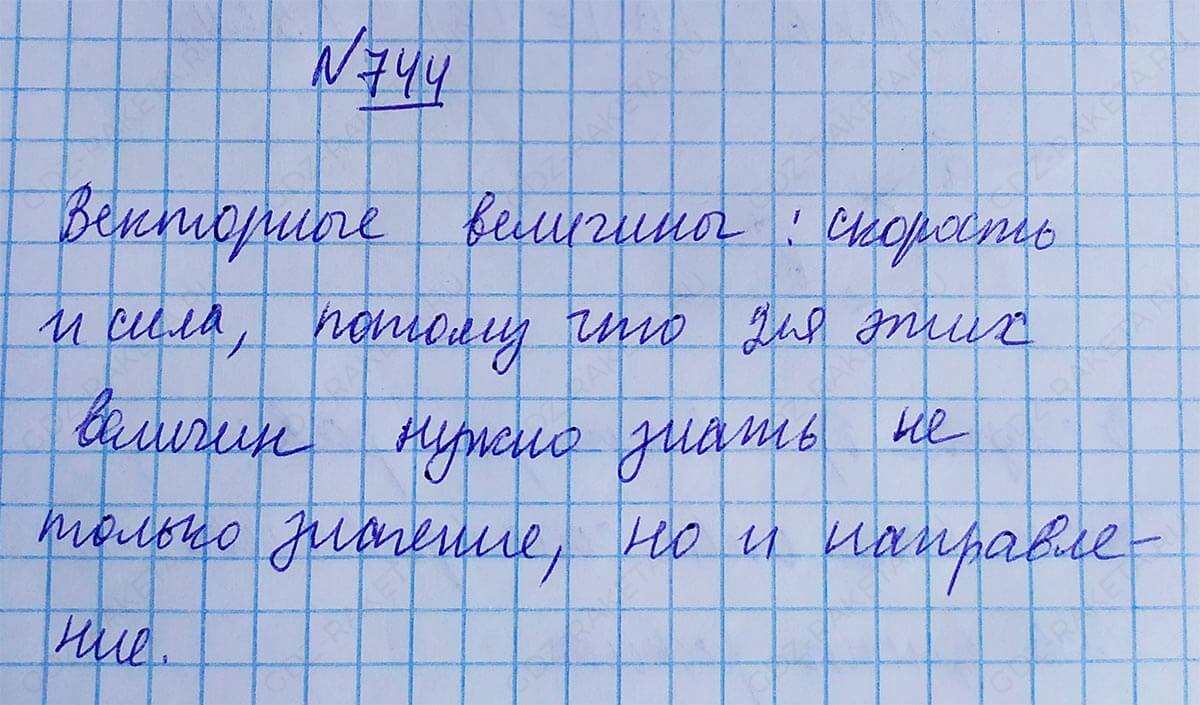 N 744
Векторные величины: скорость
и сила, потому что для этих
величин нужно знать не
только значение, но и направле-
ние.